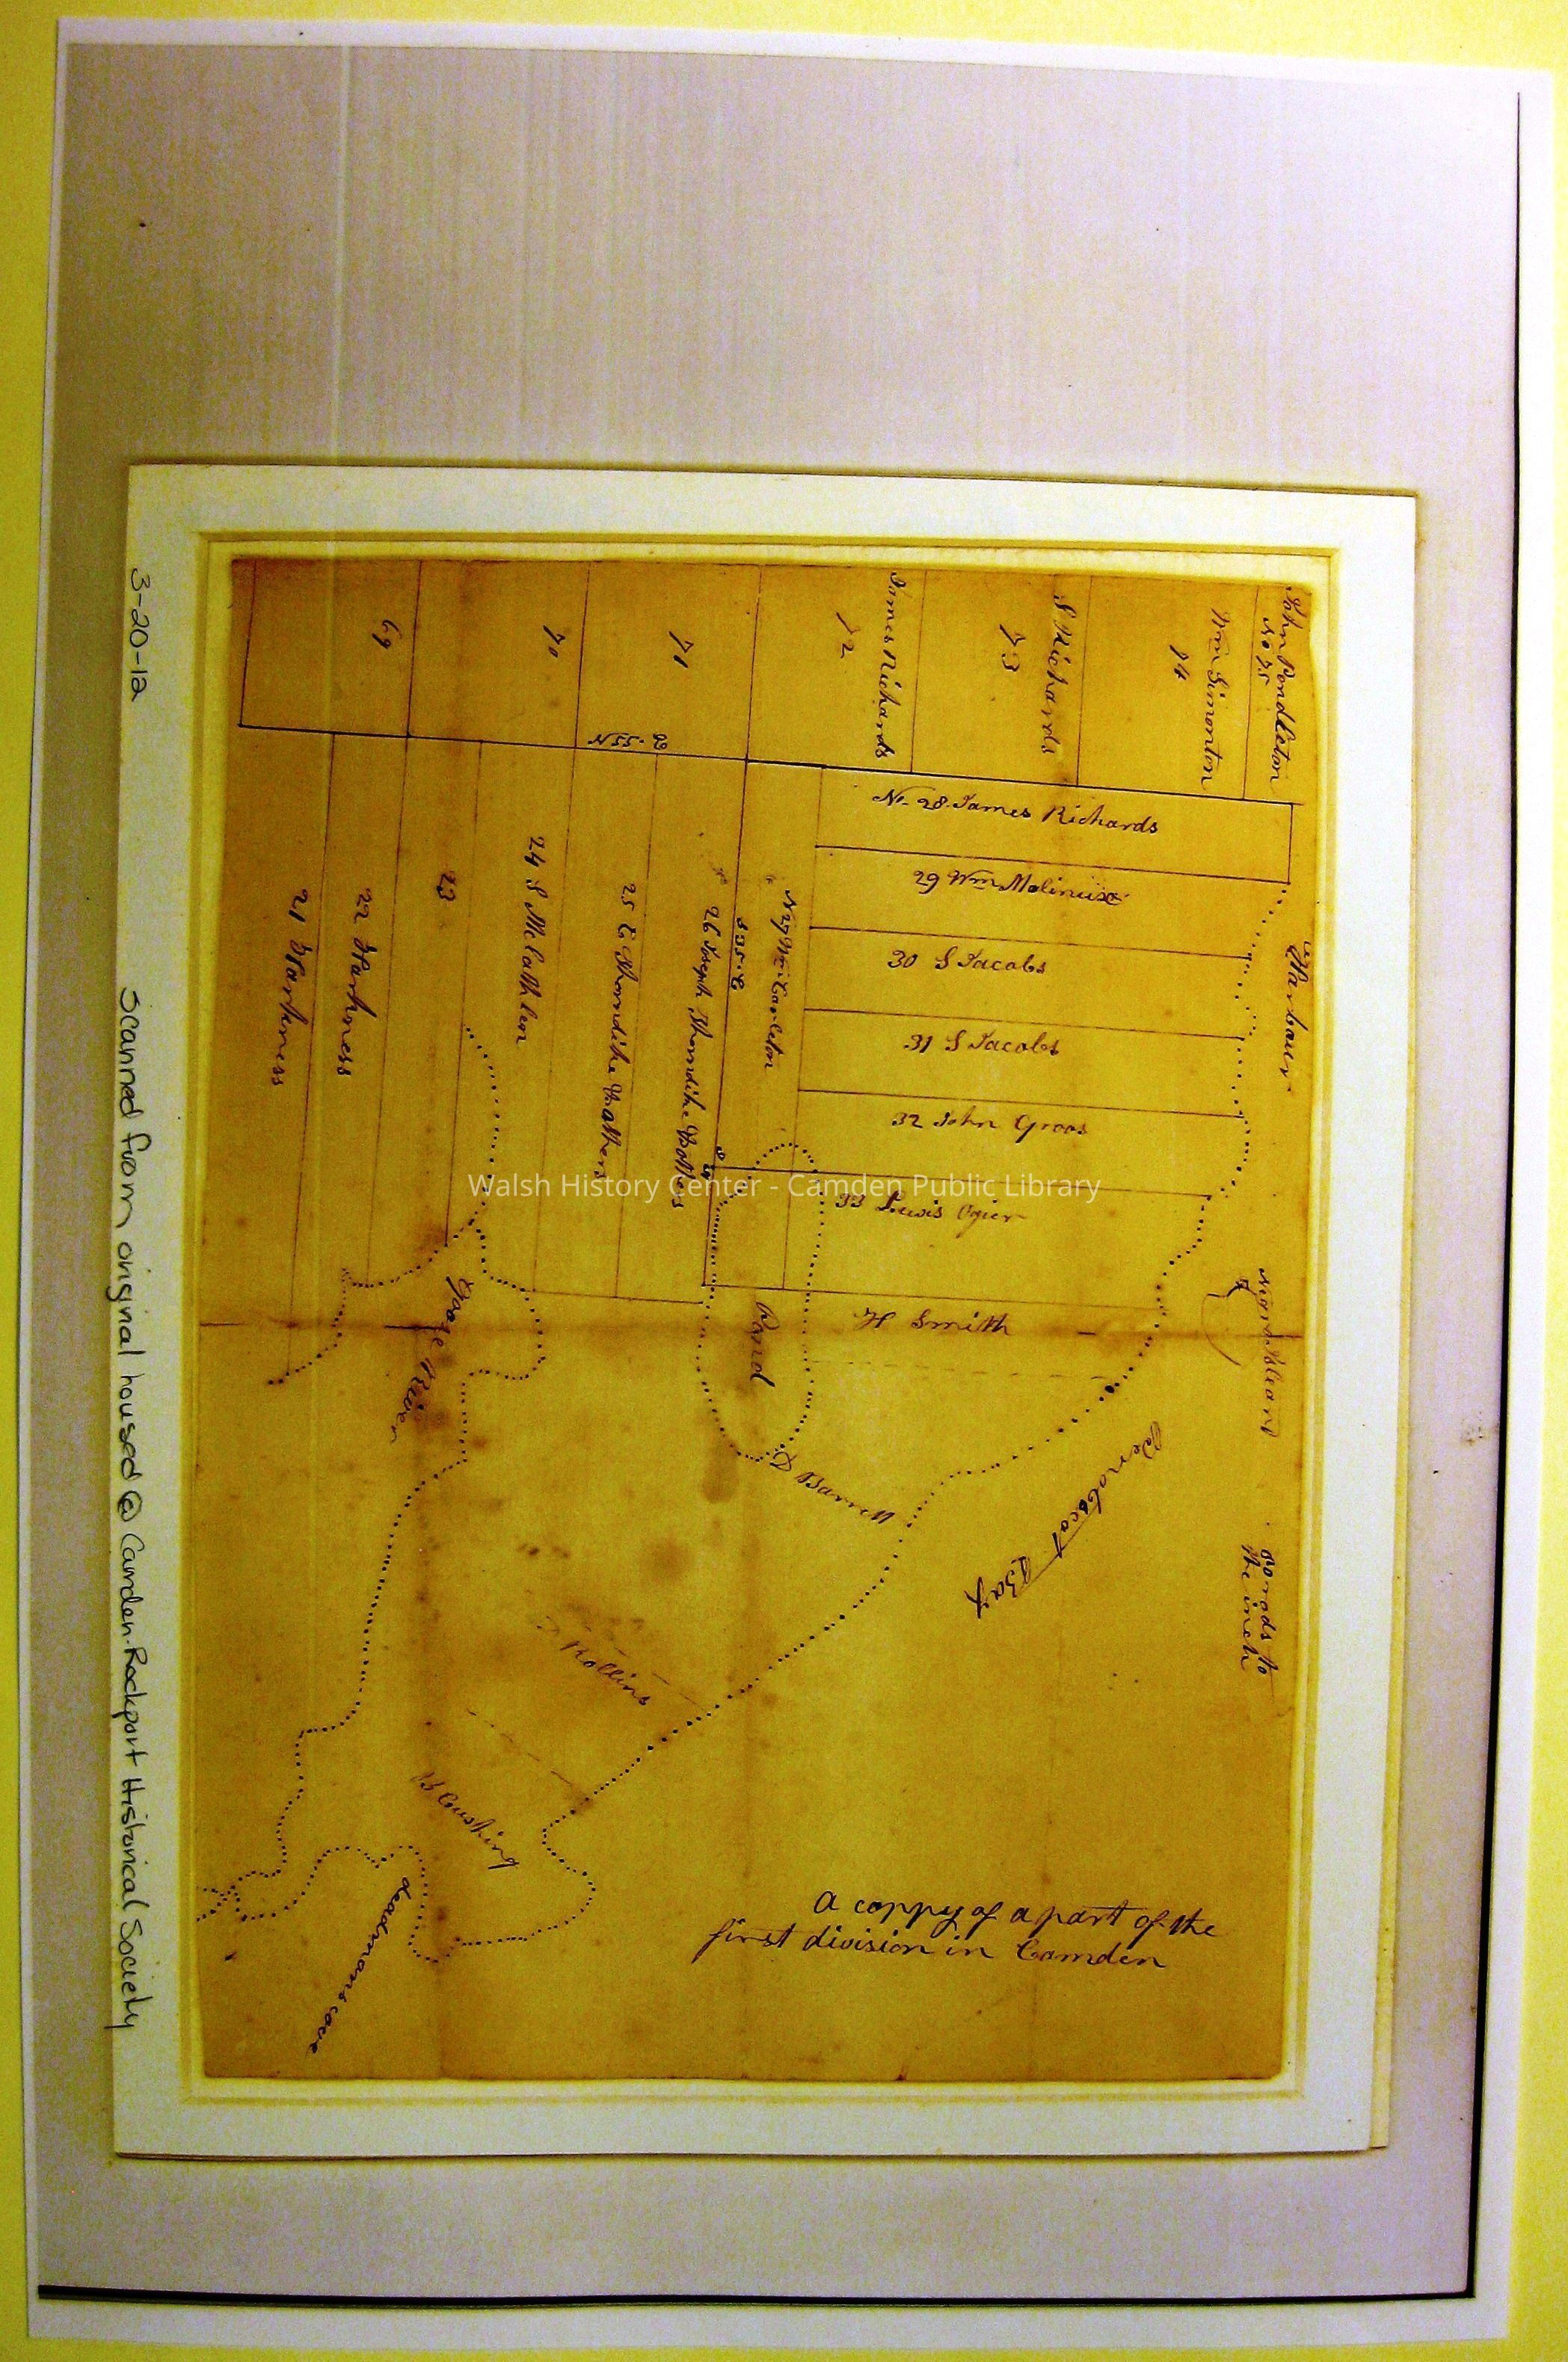 John Pendleton
No 75
Wm Simonton
74
S Richards
73
James Richards
72
71
70
69
2-55N
No. 28. James Richards
29 Wm Molineux
30 S Jacobs
31 S Jacobs
32 John Groos
33 Lewis Ogier
H Smith
Harbour
N 27 Wm Carleton
S 35 E
26 Joseph Thorndike
25 E Thorndike
24 S Mclathlen
23
22 Harkness
21 Harkness
Goose River
Pond
Barrett
Penobscot Bay
80 rods to
the inch
Rollins
B Cushing
deadmans cove
A coppy of a part of the
first division in Camden
Walsh History Center - Camden Public Library
3-20-12
Scanned from original housed @ Camden-Rockport Historical Society